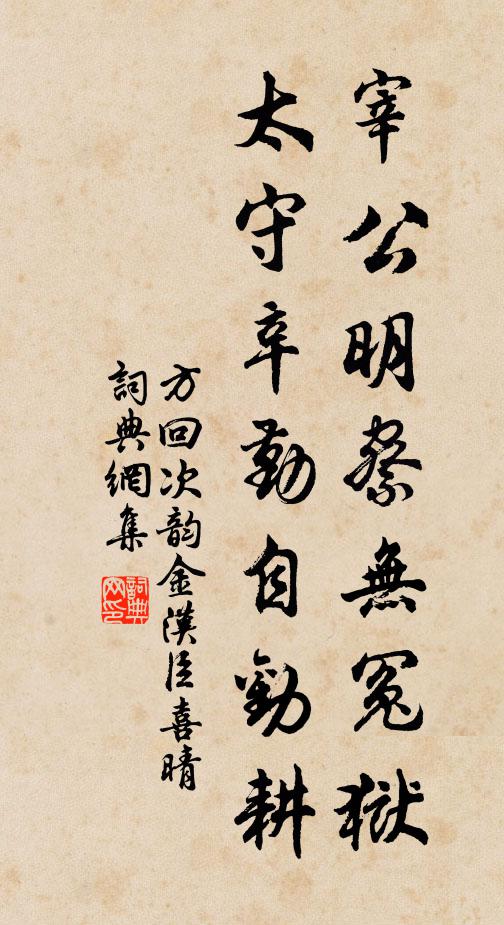 宰公明察無冤獄
太守辛勤自勸耕
方回次韵金漢臣喜晴
詞典網集
詞典網印